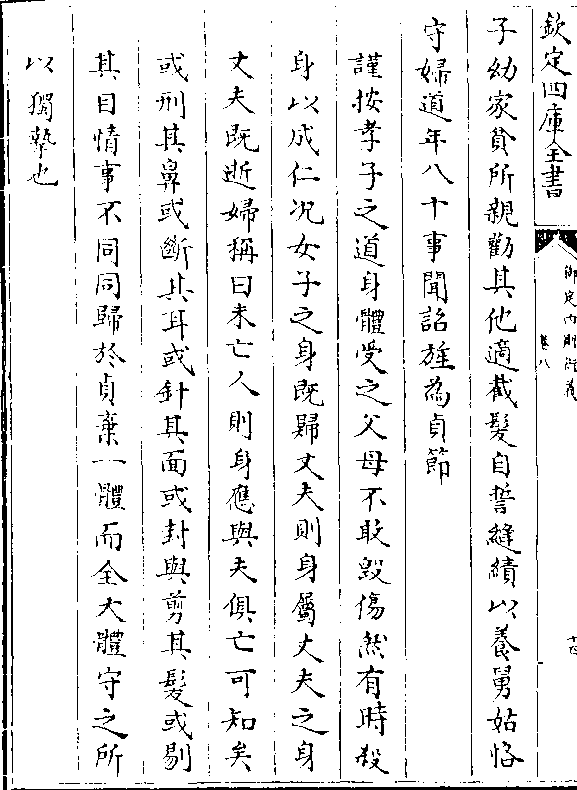 欽定四庫全書
御定內則衍義
卷八
十四
子幼家貧所親勸其他適截髮自誓縫績以養舅姑恪
守婦道年八十事聞詔旌為貞節
謹按孝子之道身體受之父母不敢毀傷然有時殺
身以成仁况女子之身既歸丈夫則身屬丈夫之身
丈夫既逝婦稱曰未亡人則身應與夫俱亡可知矣
或刑其鼻或斷其耳或針其面或封與剪其髮或剔
其目情事不同同歸於貞棄一體而全大體守之所
以獨摯也